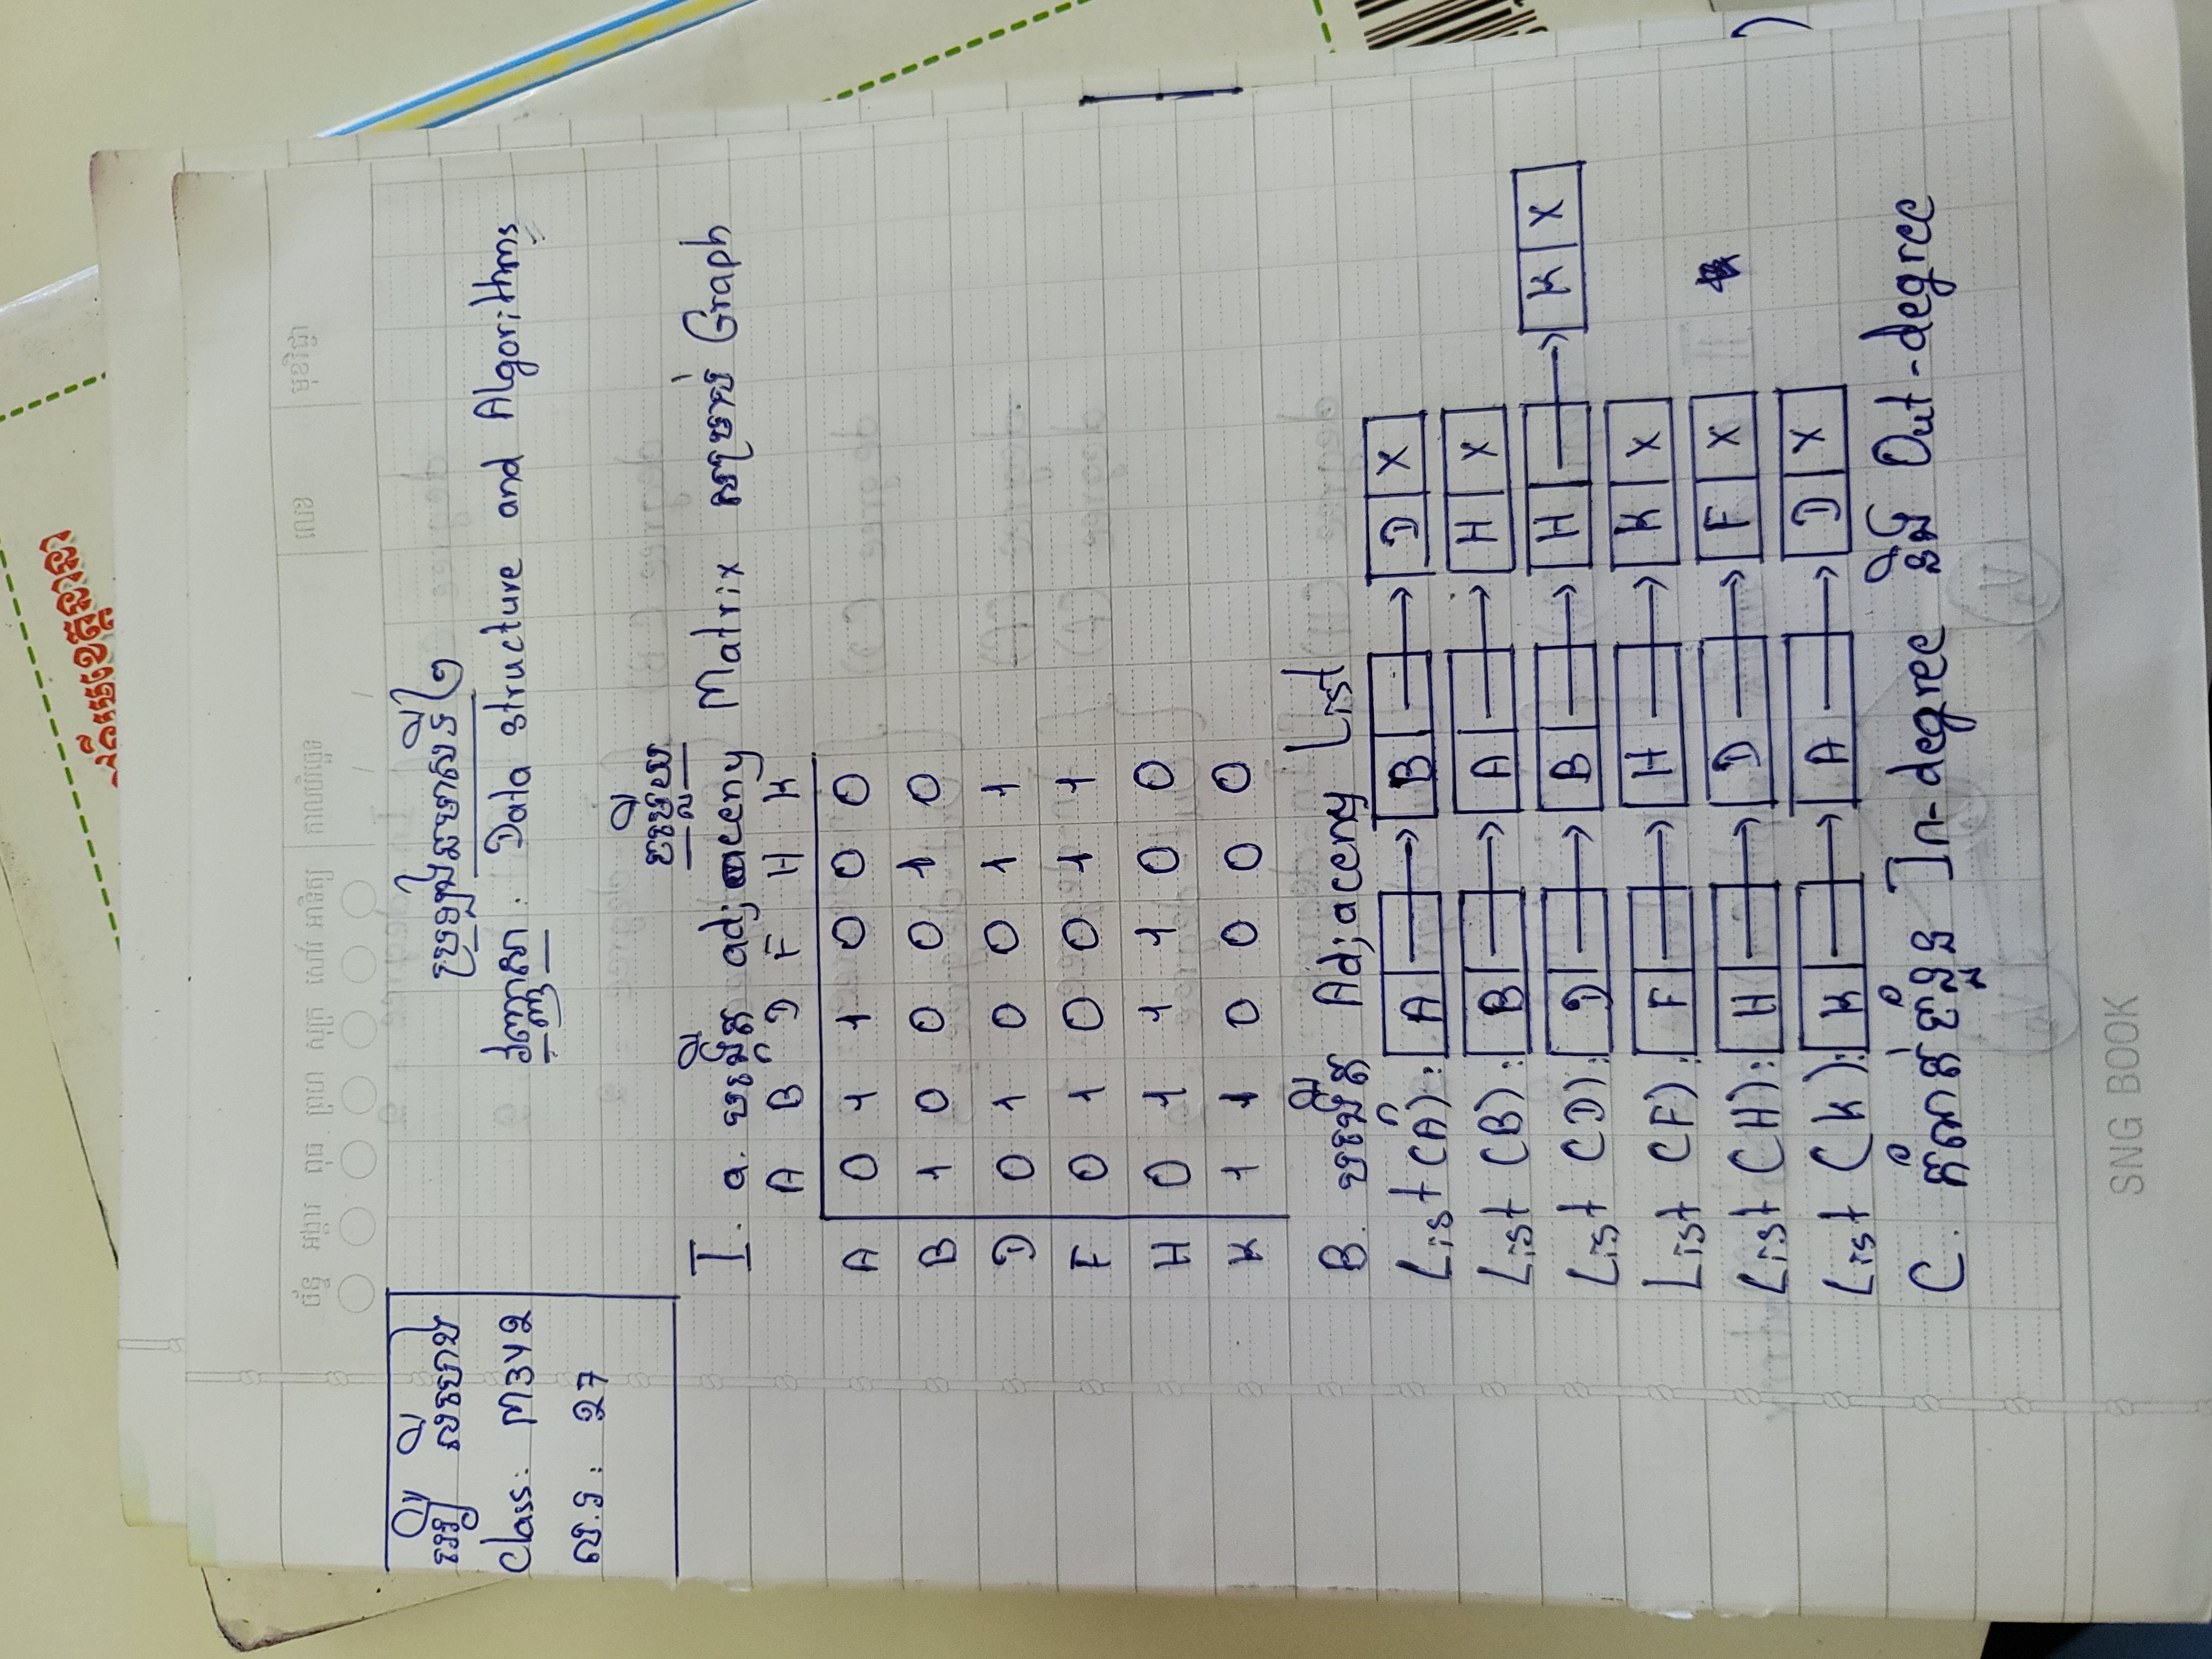 ខេត្តនានា
ច័ន្ទ អង្គារ ពុធ ព្រហ សុក្រ សៅរ៍ អាទិត្យ កាលបរិច្ឆេទ លេខ មុខវិជ្ជា
ប្រឡងឆមាសទី២
Class: M342
វិញ្ញាសា: Data structure and Algorithms
ល.រ: 27
ចម្លើយ
I. a. បង្កើត adjaceny Matrix សម្រាប់ Graph
A B D F H K
A 0 1 1 0 0 0
B 1 0 0 0 1 0
D 0 1 0 0 1 1
F 0 1 0 0 1 1
H 0 1 1 1 0 0
K 1 1 0 0 0 0
B. បង្កើត Adjaceny List
List (A): A → B → D X
List (B): B → A → H X
List (D): D → B → H → K X
List (F): F → H → K X
List (H): H → D → F X
List (K): K → A → D X
C. កំណត់ចំនួន In-degree និង Out-degree
SNG BOOK